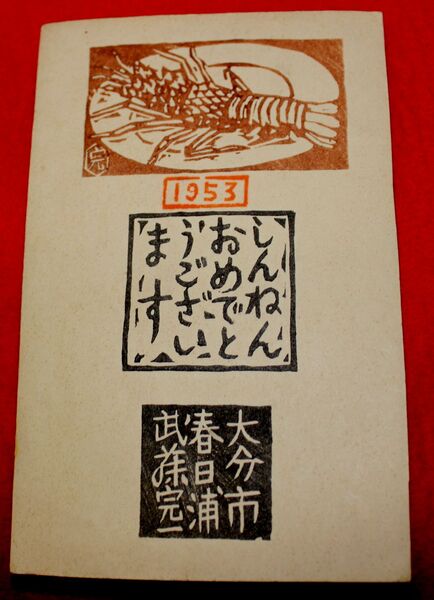 完
1953
しんねん
おめでと
うござい
ます
大分市
春日浦
武藤完一